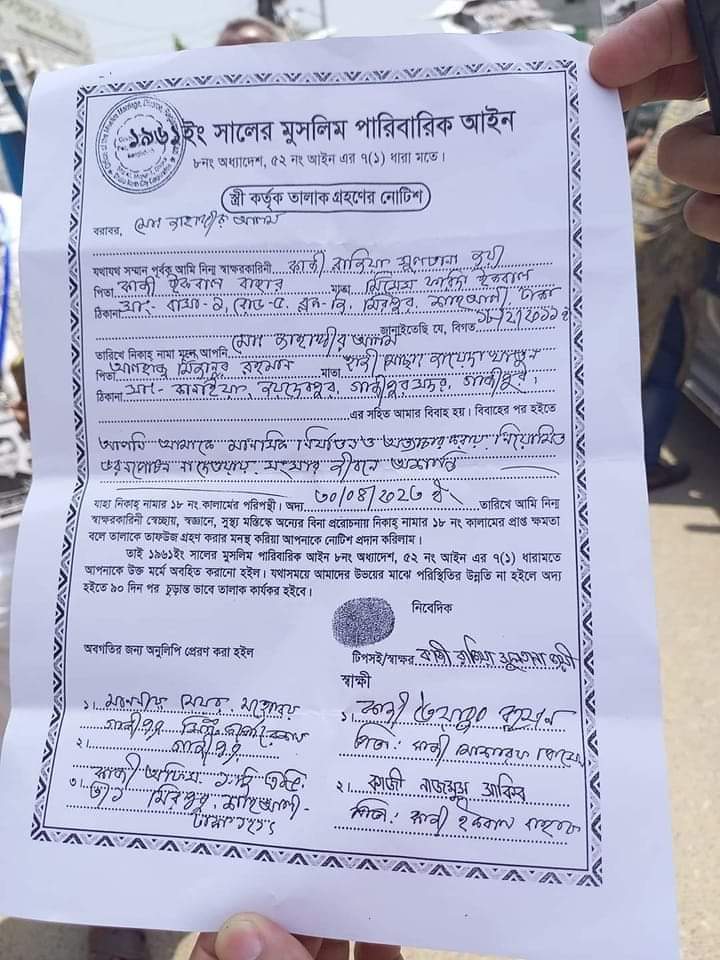 ১৯৬১ইং সালের মুসলিম পারিবারিক আইন
৮নং অধ্যাদেশ, ৫২ নং আইন এর ৭(১) ধারা মতে।
স্ত্রী কর্তৃক তালাক গ্রহণের নোটিশ
বরাবর, মোঃ জাহাঙ্গীর আলম
যথাযথ সম্মান পূর্বক আমি নিম্ন স্বাক্ষরকারিনী কাজী রাজিয়া সুলতানা
পিতা কাজী ইকবাল বাহার মাতা ইকবাল
ঠিকানা সাং- বাসা-১, রোড-৫, ব্লক-বি, মিরপুর, শাহআলী, ঢাকা
জানাইতেছি যে, বিগত
তারিখে নিকাহ্ নামা মূলে আপনি মোঃ জাহাঙ্গীর আলম
পিতা আলহাজ্ব মিজানুর রহমান মাতা
ঠিকানা সাং- কানাইয়া, জয়দেবপুর, গাজীপুর সদর, গাজীপুর।
এর সহিত আমার বিবাহ হয়। বিবাহের পর হইতে
আপনি আমাকে মানসিক নির্যাতন ও অত্যাচার করায়, নিয়মিত
ভরণপোষন না দেওয়ায়, সংসার জীবনে অশান্তি
যাহা নিকাহ্ নামার ১৮ নং কালামের পরিপন্থী। অদ্য ৩০/০৪/২০২৩ ইং তারিখে আমি নিম্ন
স্বাক্ষরকারিনী স্বেচ্ছায়, স্বজ্ঞানে, সুস্থ্য মস্তিকে অন্যের বিনা প্ররোচনায় নিকাহ্ নামার ১৮ নং কালামের প্রাপ্ত ক্ষমতা
বলে তালাকে তাফউজ গ্রহণ করার মনস্থ করিয়া আপনাকে নোটিশ প্রদান করিলাম।
তাই ১৯৬১ইং সালের মুসলিম পারিবারিক আইন ৮নং অধ্যাদেশ, ৫২ নং আইন এর ৭(১) ধারামতে
আপনাকে উক্ত মর্মে অবহিত করানো হইল। যথাসময়ে আমাদের উভয়ের মাঝে পরিস্থিতির উন্নতি না হইলে অদ্য
হইতে ৯০ দিন পর চুড়ান্ত ভাবে তালাক কার্যকর হইবে।
নিবেদিক
অবগতির জন্য অনুলিপি প্রেরণ করা হইল
টিপসই/স্বাক্ষর কাজী রাজিয়া সুলতানা
স্বাক্ষী
১। মাননীয় মেয়র মহোদয়
গাজীপুর সিটি কর্পোরেশন
২। গাজীপুর
৩। কাজী অফিস
মিরপুর, শাহআলী-
ঢাকা ১২১৬
১। কাজী
পিতা: কাজী মোশারফ হোসেন
২। কাজী নাজমুস সাকিব
পিতা: কাজী ইকবাল বাহার